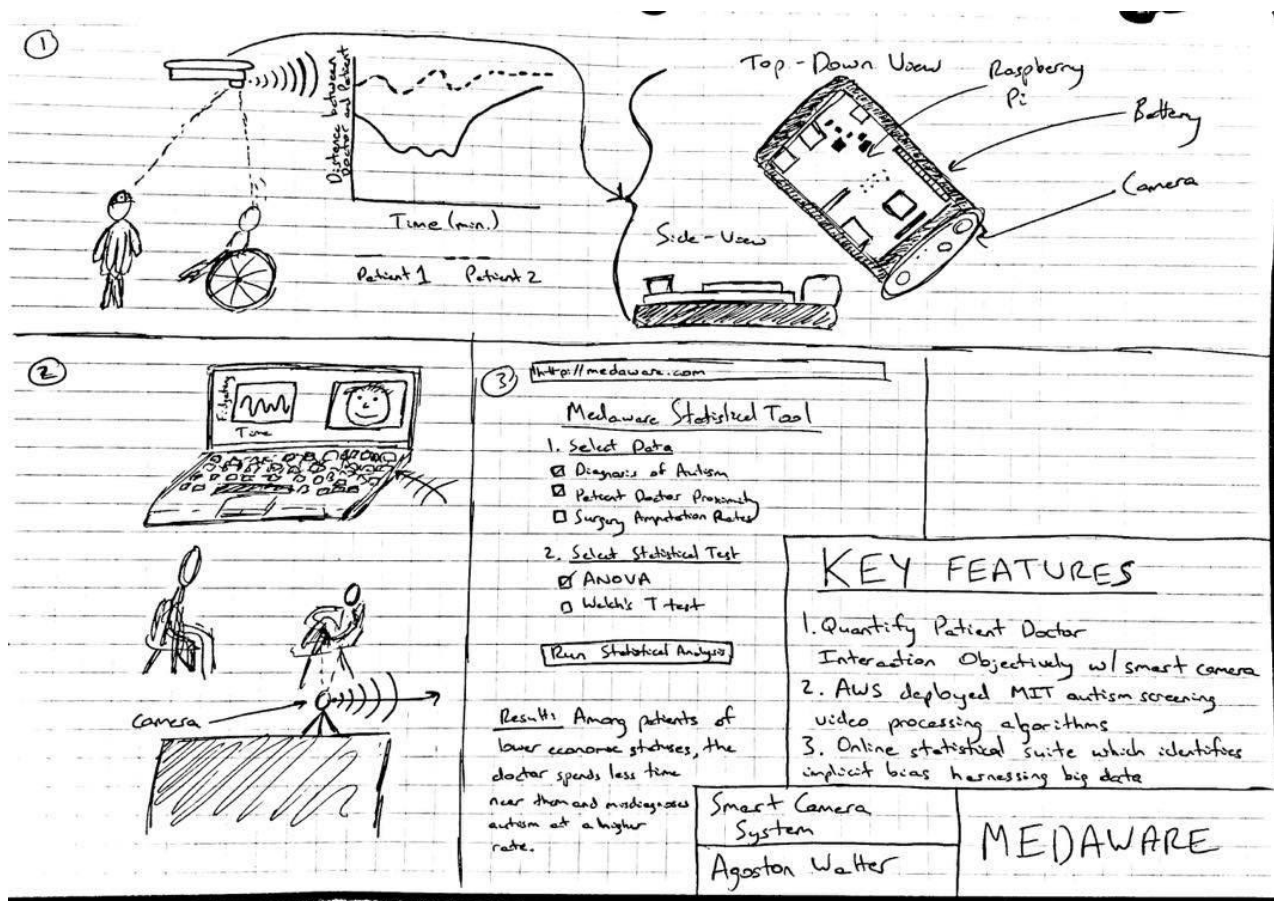 1
Distance between
Doctor and Patient
Time (min.)
Patient 1 Patient 2
Top-Down View
Raspberry
Pi
Battery
Camera
Side-View
2
Fidgeting
Time
camera
3
http://medaware.com
Medaware Statistical Tool
1. Select Data
Diagnosis of Autism
Patient Doctor Proximity
Surgery Amputation Rates
2. Select Statistical Test
ANOVA
Welch's T test
Run Statistical Analysis
Result: Among patients of
lower economic statuses, the
doctor spends less time
near them and misdiagnoses
autism at a higher
rate.
KEY FEATURES
1. Quantify Patient Doctor
Interaction Objectively w/ smart camera
2. AWS deployed MIT autism screening
video processing algorithms
3. Online statistical suite which identifies
implicit bias harnessing big data
Smart Camera
System
Agoston Walter
MEDAWARE